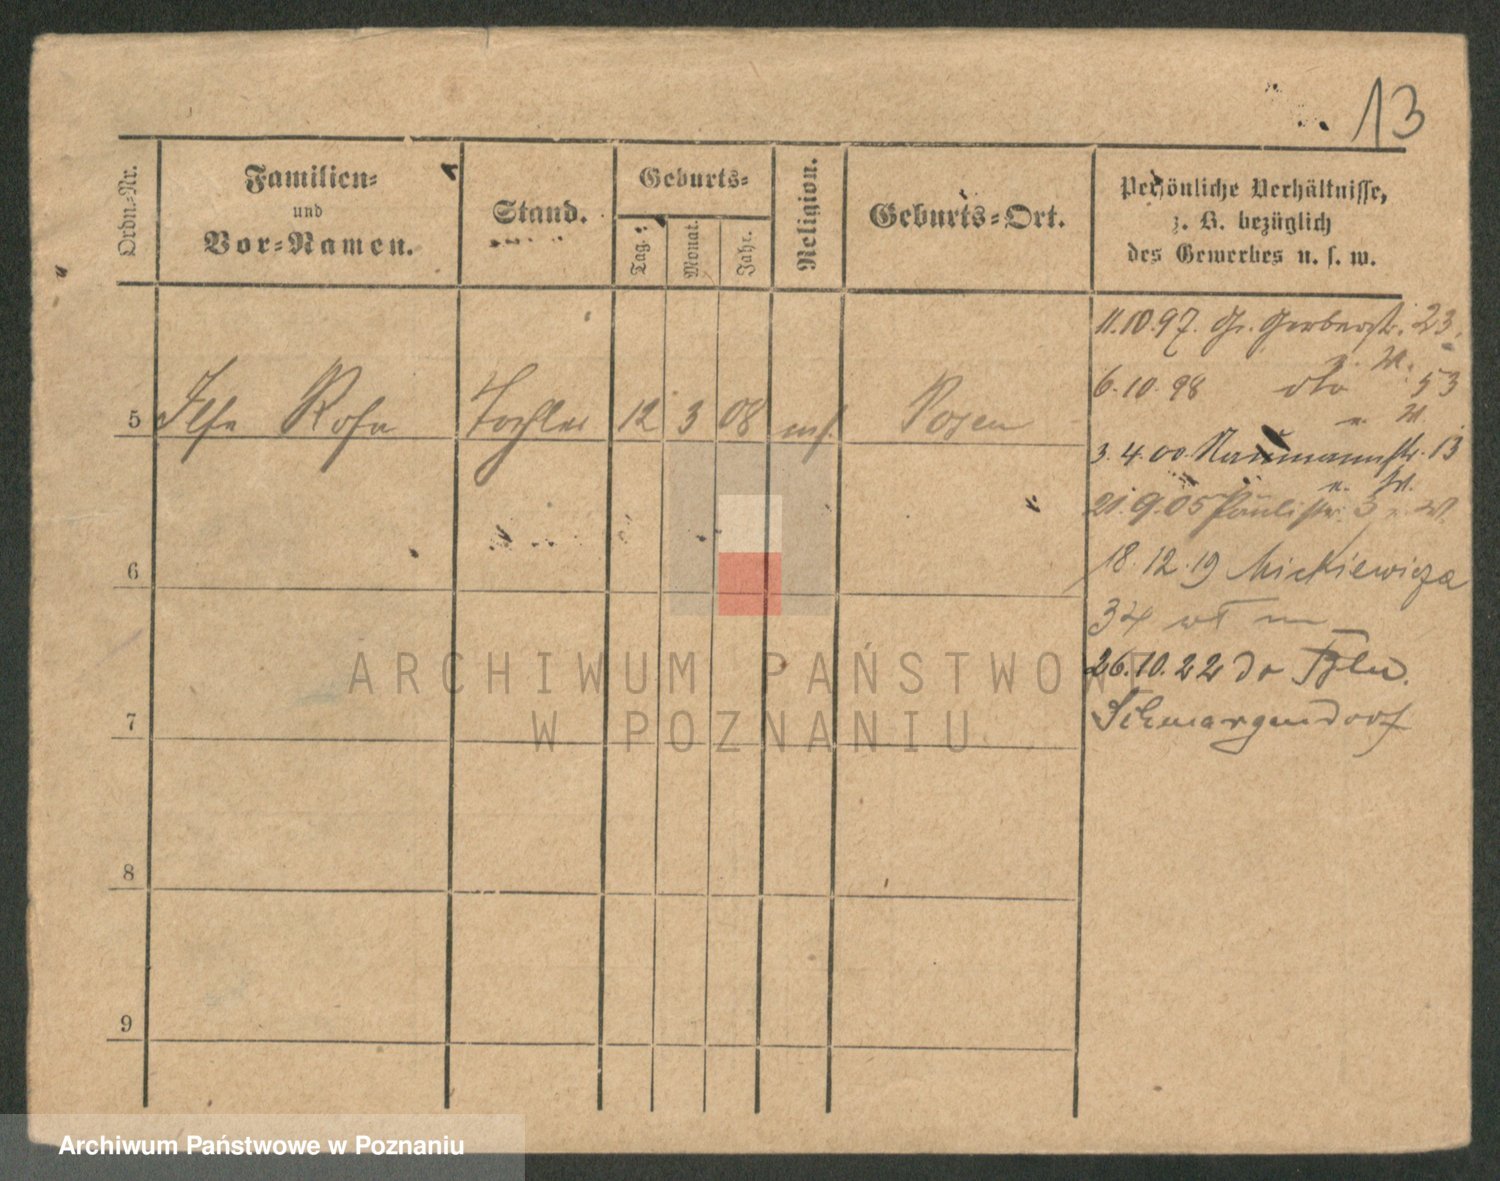 13
Ordn.-Nr.
Familien-
und
Vor-Namen.
Stand.
Geburts-
Tag.
Monat.
Jahr.
Religion.
Geburts-Ort.
Persönliche Verhältnisse,
z. B. bezüglich
des Gewerbes u. s. w.
11.10.97. Gr. Gerberstr. 23.
6.10.98 dto 53
5 Ilse Rosa Tochter 12 3 08 mos. Posen
3.4.00. Naumannstr. 13
21.9.05 Paulistr. 3
18.12.19 Mickiewicza
34
26.10.22 do
Schmargendorf
6
7
8
9
ARCHIWUM PAŃSTWOWE
W POZNANIU
Archiwum Państwowe w Poznaniu